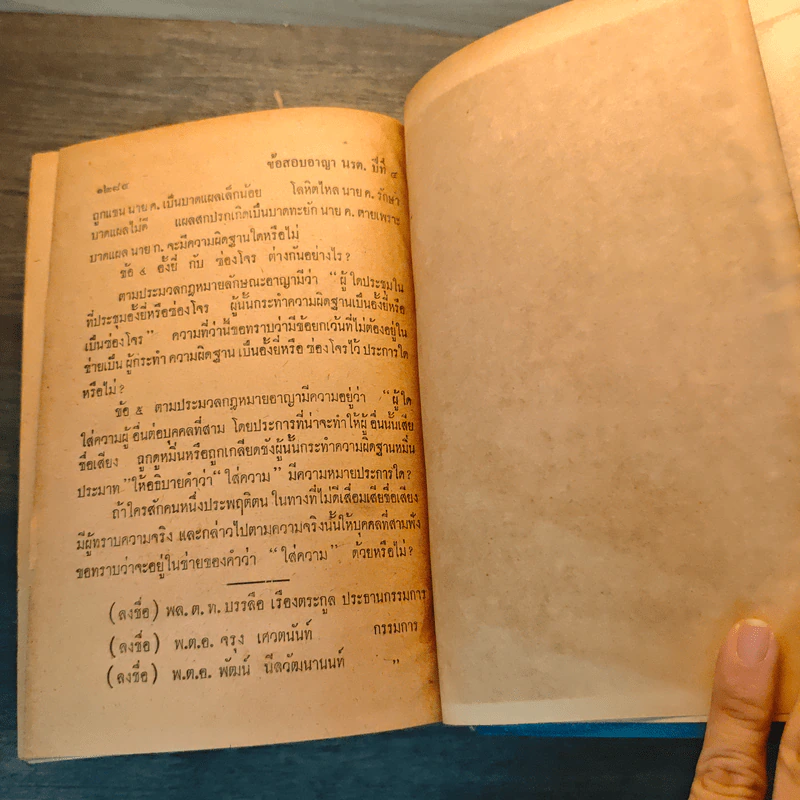 ข้อสอบอาญา นรต. ปีที่ ๔
๑๒๘๘
ถูกแขน นาย ค. เป็นบาดแผลเล็กน้อย โลหิตไหล นาย ค. รักษา
บาดแผลไม่ดี แผลสกปรกเกิดเป็นบาดทะยัก นาย ค. ตายเพราะ
บาดแผล นาย ก. จะมีความผิดฐานใดหรือไม่
ข้อ ๔ อั้งยี่ กับ ซ่องโจร ต่างกันอย่างไร?
ตามประมวลกฎหมายลักษณะอาญามีว่า “ผู้ใดประชุมใน
ที่ประชุมอั้งยี่หรือซ่องโจร ผู้นั้นกระทำความผิดฐานเป็นอั้งยี่หรือ
เป็นซ่องโจร” ความที่ว่านี้ขอทราบว่ามีข้อยกเว้นที่ไม่ต้องอยู่ใน
ข่ายเป็น ผู้กระทำ ความผิดฐาน เป็นอั้งยี่หรือ ซ่องโจรไว้ ประการใด
หรือไม่?
ข้อ ๕ ตามประมวลกฎหมายอาญามีความอยู่ว่า “ผู้ใด
ใส่ความผู้อื่นต่อบุคคลที่สาม โดยประการที่น่าจะทำให้ผู้อื่นนั้นเสีย
ชื่อเสียง ถูกดูหมิ่นหรือถูกเกลียดชังผู้นั้นกระทำความผิดฐานหมิ่น
ประมาท” ให้อธิบายคำว่า “ใส่ความ” มีความหมายประการใด?
ถ้าใครสักคนหนึ่งประพฤติตน ในทางที่ไม่ดีเสื่อมเสียชื่อเสียง
มีผู้ทราบความจริง และกล่าวไปตามความจริงนั้นให้บุคคลที่สามฟัง
ขอทราบว่าจะอยู่ในข่ายของคำว่า “ใส่ความ” ด้วยหรือไม่?
(ลงชื่อ) พล. ต. ท. บรรลือ เรืองตระกูล ประธานกรรมการ
(ลงชื่อ) พ.ต.อ. จรุง เศวตนันท์ กรรมการ
(ลงชื่อ) พ.ต.อ. พัฒน์ นีลวัฒนานนท์ ”